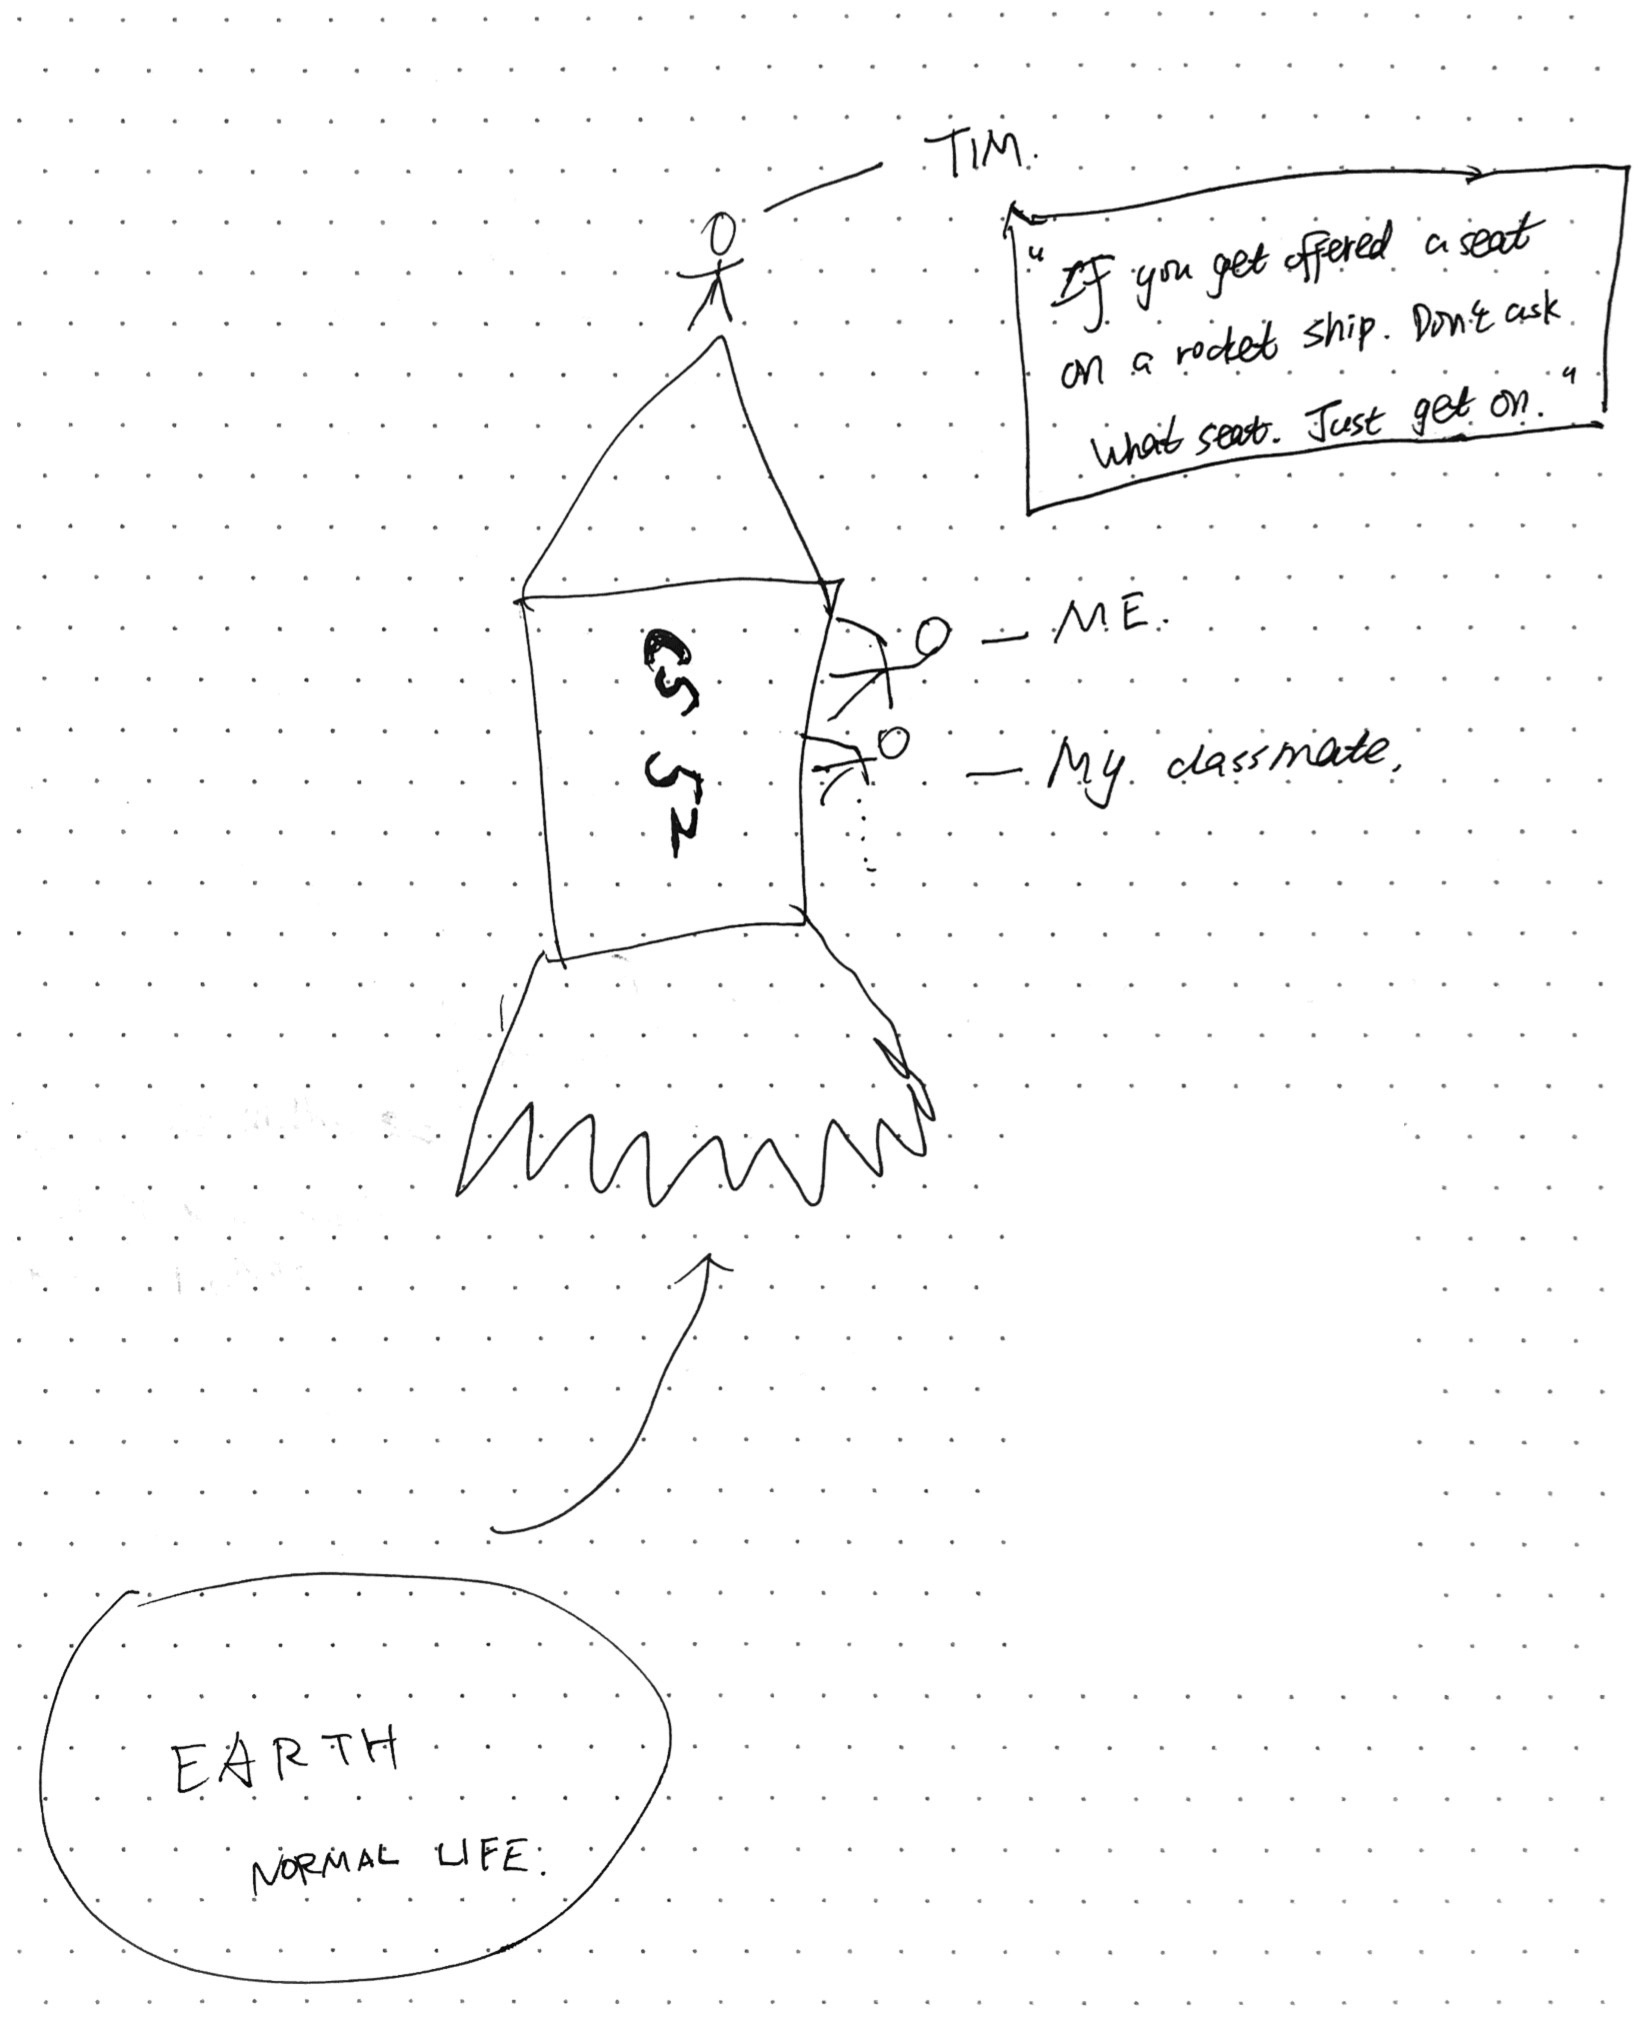 TIM.
"If you get offered a seat
on a rocket ship. Don't ask
what seat. Just get on."
ME.
CS 52
My classmate.
EARTH
NORMAL LIFE.